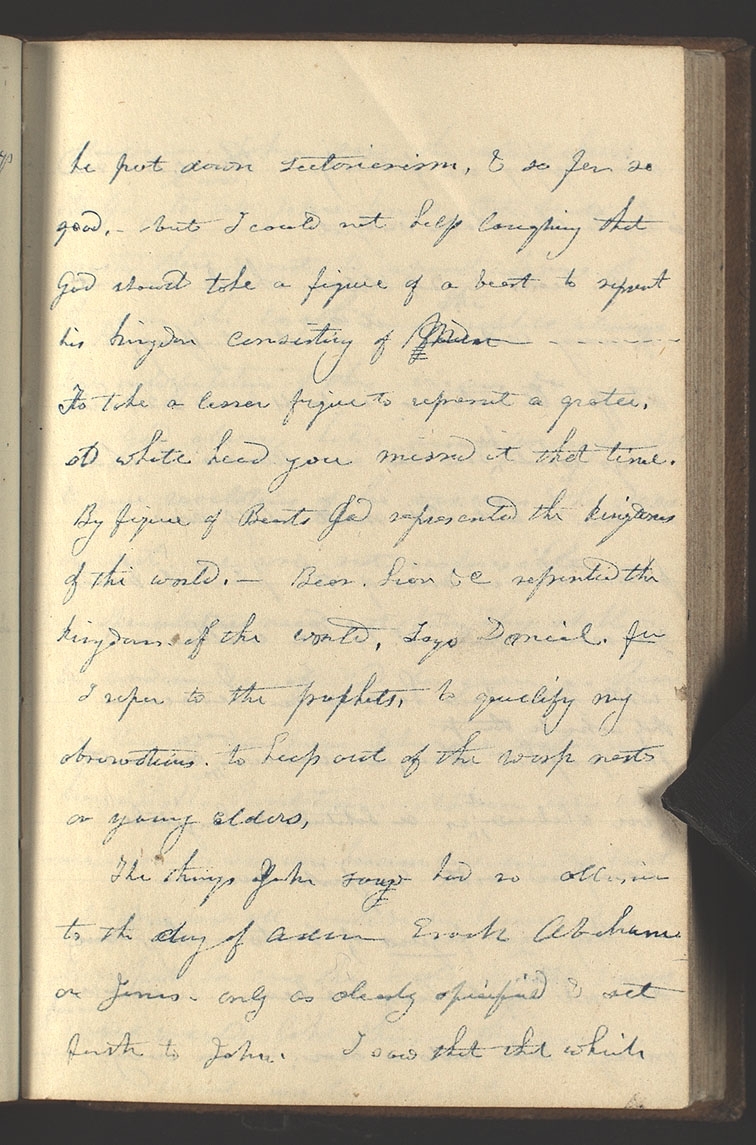 he put down sectarianism, & so far so
good.— but I could not help laughing that
God should take a figure of a beast to represent
his kingdom consisting of
To take a lesser figure to represent a greater.
old white head you missed it that time.
By figure of Beasts God represented the kingdoms
of the world.— Bear. Lion &c represented the
kingdoms of the world, says Daniel. for
I refer to the prophets, to qualify my
observations. to keep out of the wasp nests
or young elders,
The things John saw had no allusion
to the day of Adam Enoch Abraham
or Jesus. only as clearly specified & set
forth to John. I saw that that which